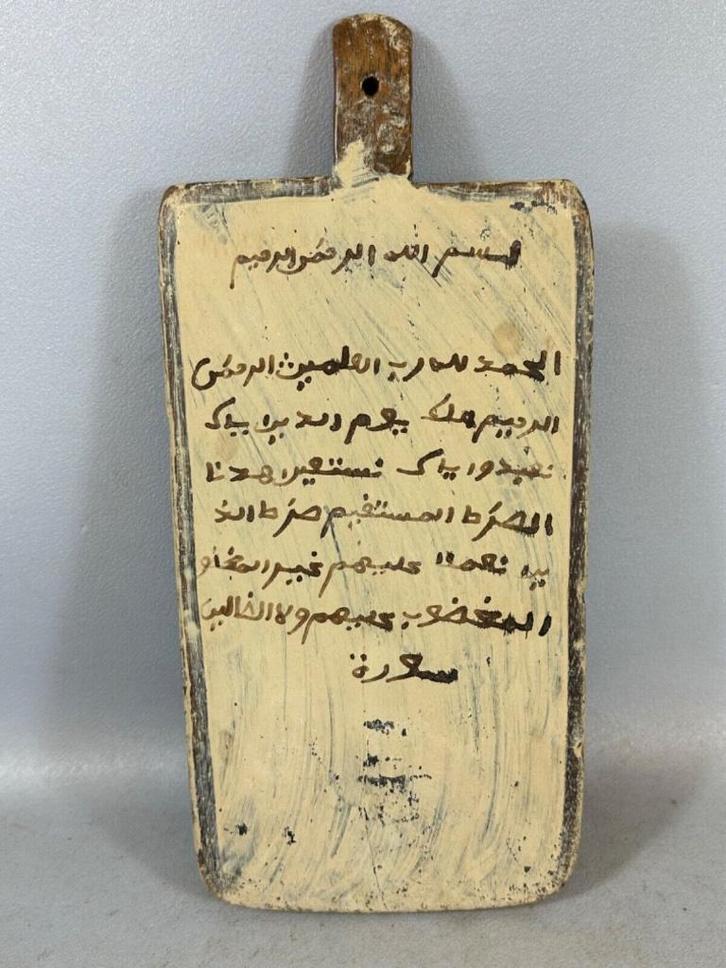 بسم الله الرحمن الرحيم
الحمد لله رب العلمين الرحمن
الرحيم ملك يوم الدين اياك
نعبد واياك نستعين اهدنا
الصرط المستقيم صرط الذ
ين نعمة عليهم غير المغضو
المغضوب عليهم ولا الضالين
سورة